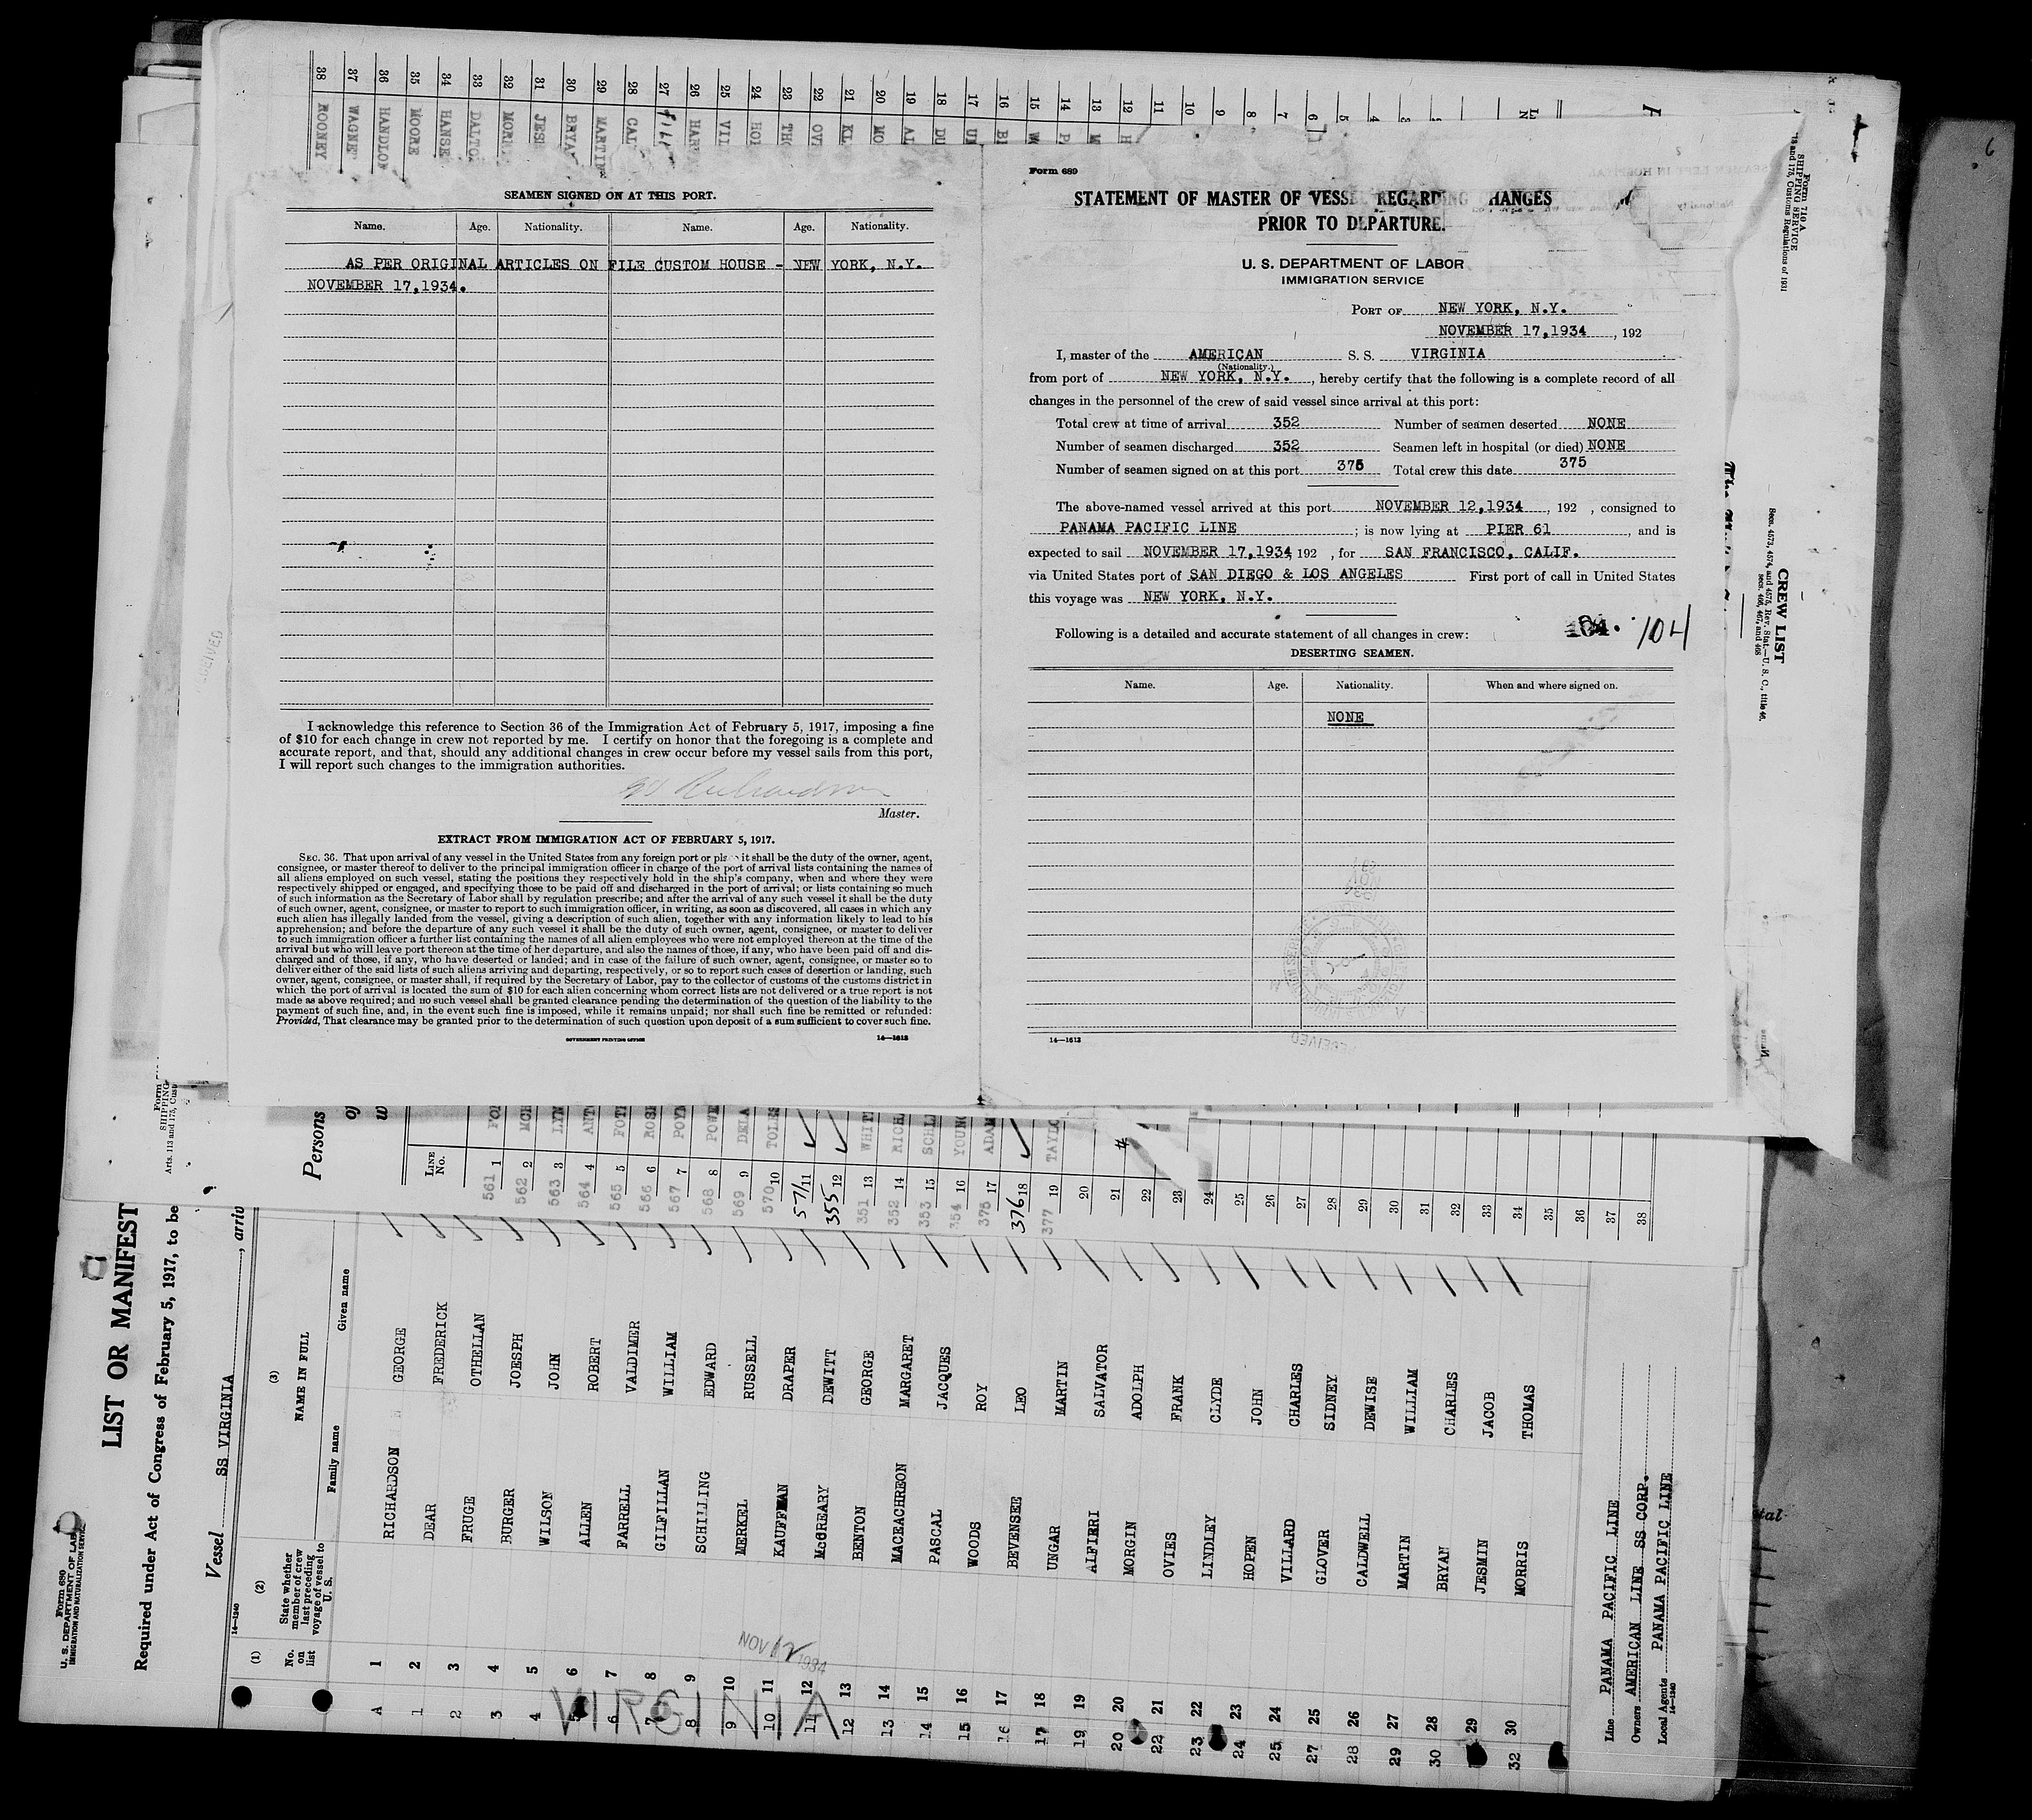 38 37 36 35 34 33 32 31 30 29 28 27 26 25 24 23 22 21 20 19 18 17 16 15 14 13 12 11 10 9 8 7 6 5 4 3
MOONEY
WAGNE
HANDLO
MOORE
HANSE
DALTO
MORR
JES
BRYA
MARTIN
SEAMEN SIGNED ON AT THIS PORT.
Name. Age. Nationality. Name. Age. Nationality.
AS PER ORIGINAL ARTICLES ON FILE CUSTOM HOUSE - NEW YORK, N.Y.
NOVEMBER 17,1934.
I acknowledge this reference to Section 36 of the Immigration Act of February 5, 1917, imposing a fine
of $10 for each change in crew not reported by me. I certify on honor that the foregoing is a complete and
accurate report, and that, should any additional changes in crew occur before my vessel sails from this port,
I will report such changes to the immigration authorities.
Richardson
Master.
EXTRACT FROM IMMIGRATION ACT OF FEBRUARY 5, 1917.
SEC. 36. That upon arrival of any vessel in the United States from any foreign port or place it shall be the duty of the owner, agent,
consignee, or master thereof to deliver to the principal immigration officer in charge of the port of arrival lists containing the names of
all aliens employed on such vessel, stating the positions they respectively hold in the ship's company, when and where they were
respectively shipped or engaged, and specifying those to be paid off and discharged in the port of arrival; or lists containing so much
of such information as the Secretary of Labor shall by regulation prescribe; and after the arrival of any such vessel it shall be the duty
of such owner, agent, consignee, or master to report to such immigration officer, in writing, as soon as discovered, all cases in which any
such alien has illegally landed from the vessel, giving a description of such alien, together with any information likely to lead to his
apprehension; and before the departure of any such vessel it shall be the duty of such owner, agent, consignee, or master to deliver
to such immigration officer a further list containing the names of all alien employees who were not employed thereon at the time of the
arrival but who will leave port thereon at the time of her departure, and also the names of those, if any, who have been paid off and dis-
charged and of those, if any, who have deserted or landed; and in case of the failure of such owner, agent, consignee, or master so to
deliver either of the said lists of such aliens arriving and departing, respectively, or so to report such cases of desertion or landing, such
owner, agent, consignee, or master shall, if required by the Secretary of Labor, pay to the collector of customs of the customs district in
which the port of arrival is located the sum of $10 for each alien concerning whom correct lists are not delivered or a true report is not
made as above required; and no such vessel shall be granted clearance pending the determination of the question of the liability to the
payment of such fine, and, in the event such fine is imposed, while it remains unpaid; nor shall such fine be remitted or refunded:
Provided, That clearance may be granted prior to the determination of such question upon deposit of a sum sufficient to cover such fine.
GOVERNMENT PRINTING OFFICE 14—1613
Form 689
STATEMENT OF MASTER OF VESSEL REGARDING CHANGES
PRIOR TO DEPARTURE.
U. S. DEPARTMENT OF LABOR
IMMIGRATION SERVICE
PORT OF NEW YORK, N.Y.
NOVEMBER 17,1934, 192
I, master of the AMERICAN S. S. VIRGINIA
(Nationality.)
from port of NEW YORK, N.Y., hereby certify that the following is a complete record of all
changes in the personnel of the crew of said vessel since arrival at this port:
Total crew at time of arrival 352 Number of seamen deserted NONE
Number of seamen discharged 352 Seamen left in hospital (or died) NONE
Number of seamen signed on at this port 375 Total crew this date 375
The above-named vessel arrived at this port NOVEMBER 12,1934, 192 , consigned to
PANAMA PACIFIC LINE ; is now lying at PIER 61 , and is
expected to sail NOVEMBER 17,1934 192 , for SAN FRANCISCO, CALIF.
via United States port of SAN DIEGO & LOS ANGELES First port of call in United States
this voyage was NEW YORK, N.Y.
Following is a detailed and accurate statement of all changes in crew: 104. 104
DESERTING SEAMEN.
Name. Age. Nationality. When and where signed on.
NONE
14—1613
Form 710 A
SHIPPING SERVICE
113 and 175, Customs Regulations of 1931
CREW LIST
Secs. 4573, 4574, and 4575, Rev. Stat.—U. S. C., title 46,
secs. 466, 467, and 468
Form
SHIPPING
Arts. 113 and 175, Cust
Persons
LINE No.
561 1
562 2
563 3
564 4
565 5
566 6
567 7
568 8 POWE
569 9 DELA
570 10 TOLE
571 11
355 12
351 13 WHIT
352 14 RICH
353 15 SCHL
354 16 YOUNG
375 17 ADAM
376 18
377 19 TAYLO
20
21
22
23
24
25
26
27
28
29
30
31
32
33
34
35
36
37
38
Form 680
U. S. DEPARTMENT OF LABOR
IMMIGRATION AND NATURALIZATION SERVICE
LIST OR MANIFEST
Required under Act of Congress of February 5, 1917, to be
Vessel SS VIRGINIA , arriv
14—1240
(1) (2) (3)
No. on list
State whether member of crew last preceding voyage of vessel to U. S.
NAME IN FULL
Family name Given name
A 1 RICHARDSON GEORGE
1 2 DEAR FREDERICK
2 3 FRUGE OTHELLAN
3 4 BURGER JOESPH
4 5 WILSON JOHN
5 6 ALLEN ROBERT
6 7 FARRELL VALDIMER
7 8 GILFILLAN WILLIAM
8 9 SCHILLING EDWARD
9 10 MERKEL RUSSELL
10 11 KAUFFMAN DRAPER
11 12 McGREARY DEWITT
12 13 BENTON GEORGE
13 14 MACEACHREON MARGARET
14 15 PASCAL JACQUES
15 16 WOODS ROY
16 17 BEVENSEE LEO
17 18 UNGAR MARTIN
19 19 ALFIERI SALVATOR
20 20 MORGIN ADOLPH
22 21 OVIES FRANK
23 22 LINDLEY CLYDE
24 23 HOPEN JOHN
25 24 VILLARD CHARLES
27 25 GLOVER SIDNEY
28 26 CALDWELL DEWISE
29 27 MARTIN WILLIAM
30 28 BRYAN CHARLES
29 JESMIN JACOB
32 30 MORRIS THOMAS
NOV 12 1934
VIRGINIA
Line PANAMA PACIFIC LINE
Owners AMERICAN LINE SS CORP.
Local Agents PANAMA PACIFIC LINE
14—1240